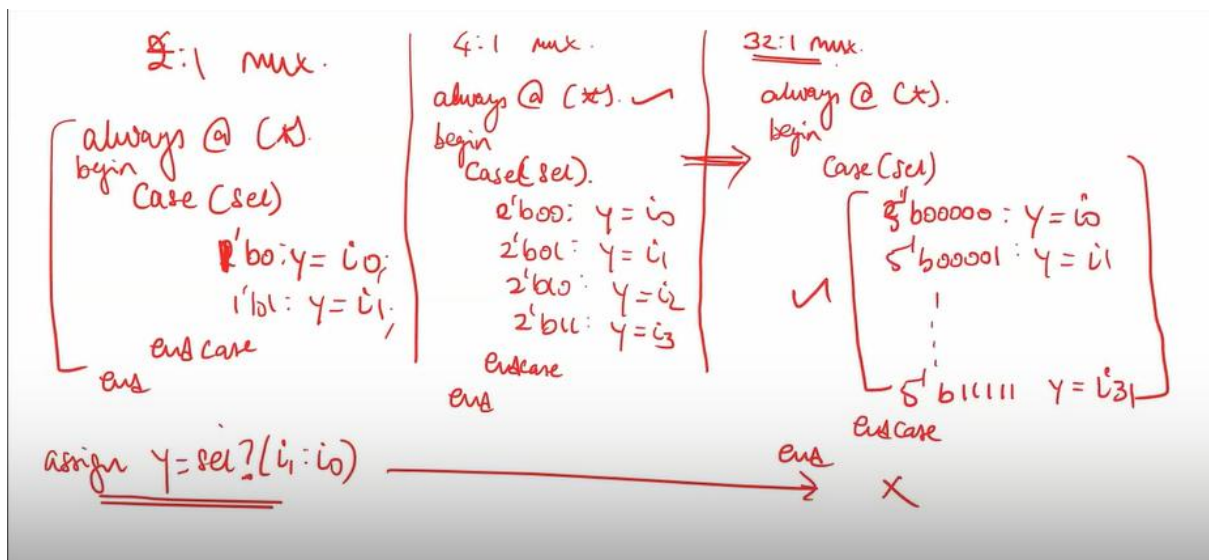 2:1 mux.
always @ (*).
begin
case (sel)
1'b0: y = i0;
1'b1: y = i1;
endcase
end
assign y = sel ? (i1 : i0)
4:1 mux.
always @ (*).
begin
case(sel).
2'b00: y = i0
2'b01: y = i1
2'b10: y = i2
2'b11: y = i3
endcase
end
32:1 mux.
always @ (*).
begin
case (sel)
5'b00000: y = i0
5'b00001: y = i1
5'b11111 y = i31
endcase
end
X